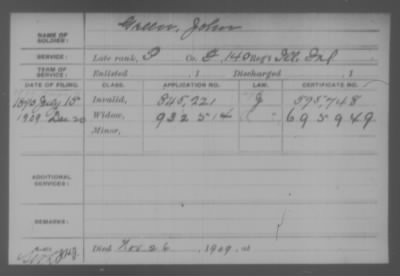 Green, John
NAME OF SOLDIER:
SERVICE: Late rank, P Co. E, 140 Reg't Ill. Inf
TERM OF SERVICE: Enlisted , 1 Discharged , 1
DATE OF FILING. CLASS. APPLICATION NO. LAW. CERTIFICATE NO.
1890 July 15 Invalid, 845,221 J 595748
1909 Dec 20 Widow, 932514 " 695949
Minor,
ADDITIONAL SERVICES:
REMARKS:
Died Nov 26, 1909, at